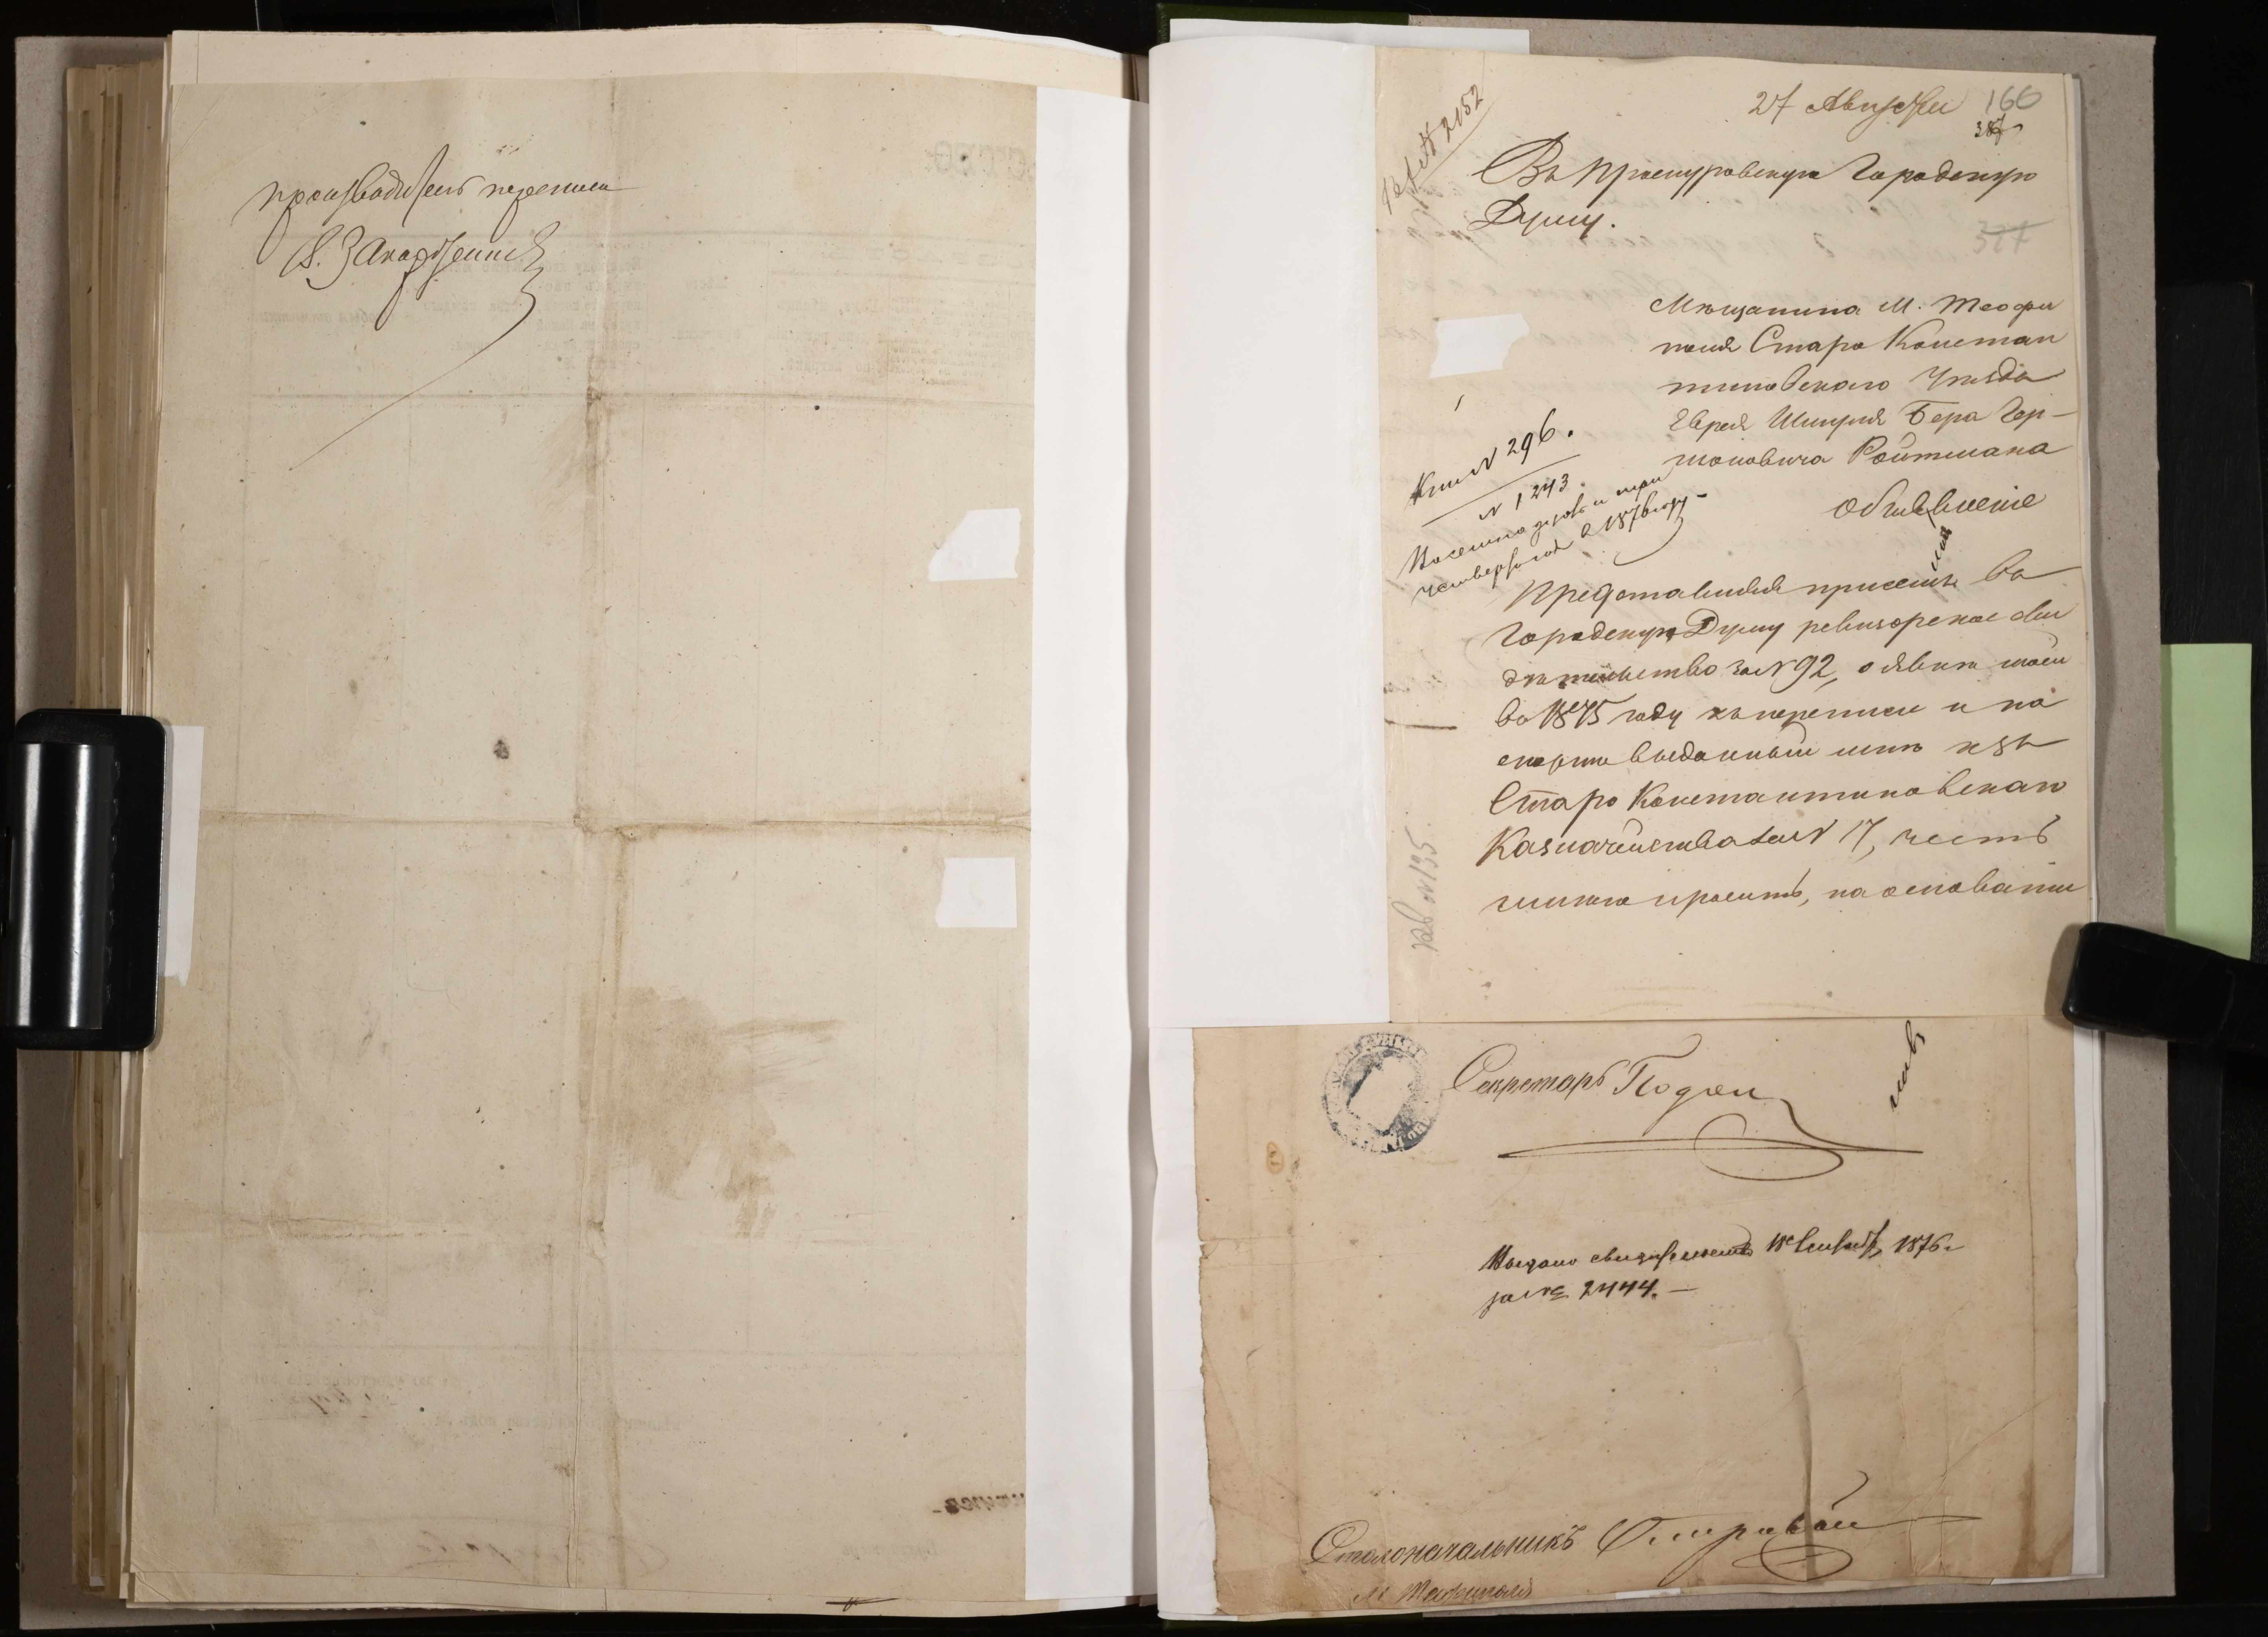 производитель переписи
27 Августа 160
387
Рег. № 2152
Въ Проскуровскую Городскую
Думу.
387
Мѣщанина М. Теофи
поля Старо Констан
тиновскаго Уѣзда
Еврея Шмуля Бера Гер-
шковича Ройтмана
Объявленіе
Кни № 296.
№ 1243.
1876 году
Представляя присемъ въ
Городскую Думу ревизорское сви
дѣтельство за № 92, о явкѣ моей
во 1875 году къ переписи и па
спортъ выданный мнѣ изъ
Старо Константиновскаго
Казначейства за № 17, честь
имѣю просить, на основаніи
№ 135
Секретарь
Выдано свидѣтельство 18 Сентяб 1876 г
за № 2444.—
Столоначальникъ
М. Теофиполя